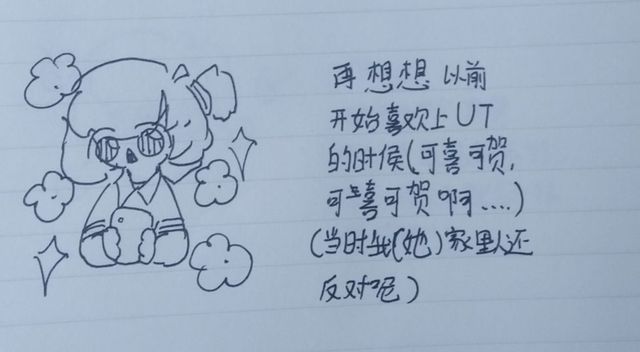 再想想以前
开始喜欢上UT
的时候(可喜可贺,
可喜可贺啊....)
(当时我(她)家里人还
反对呢)